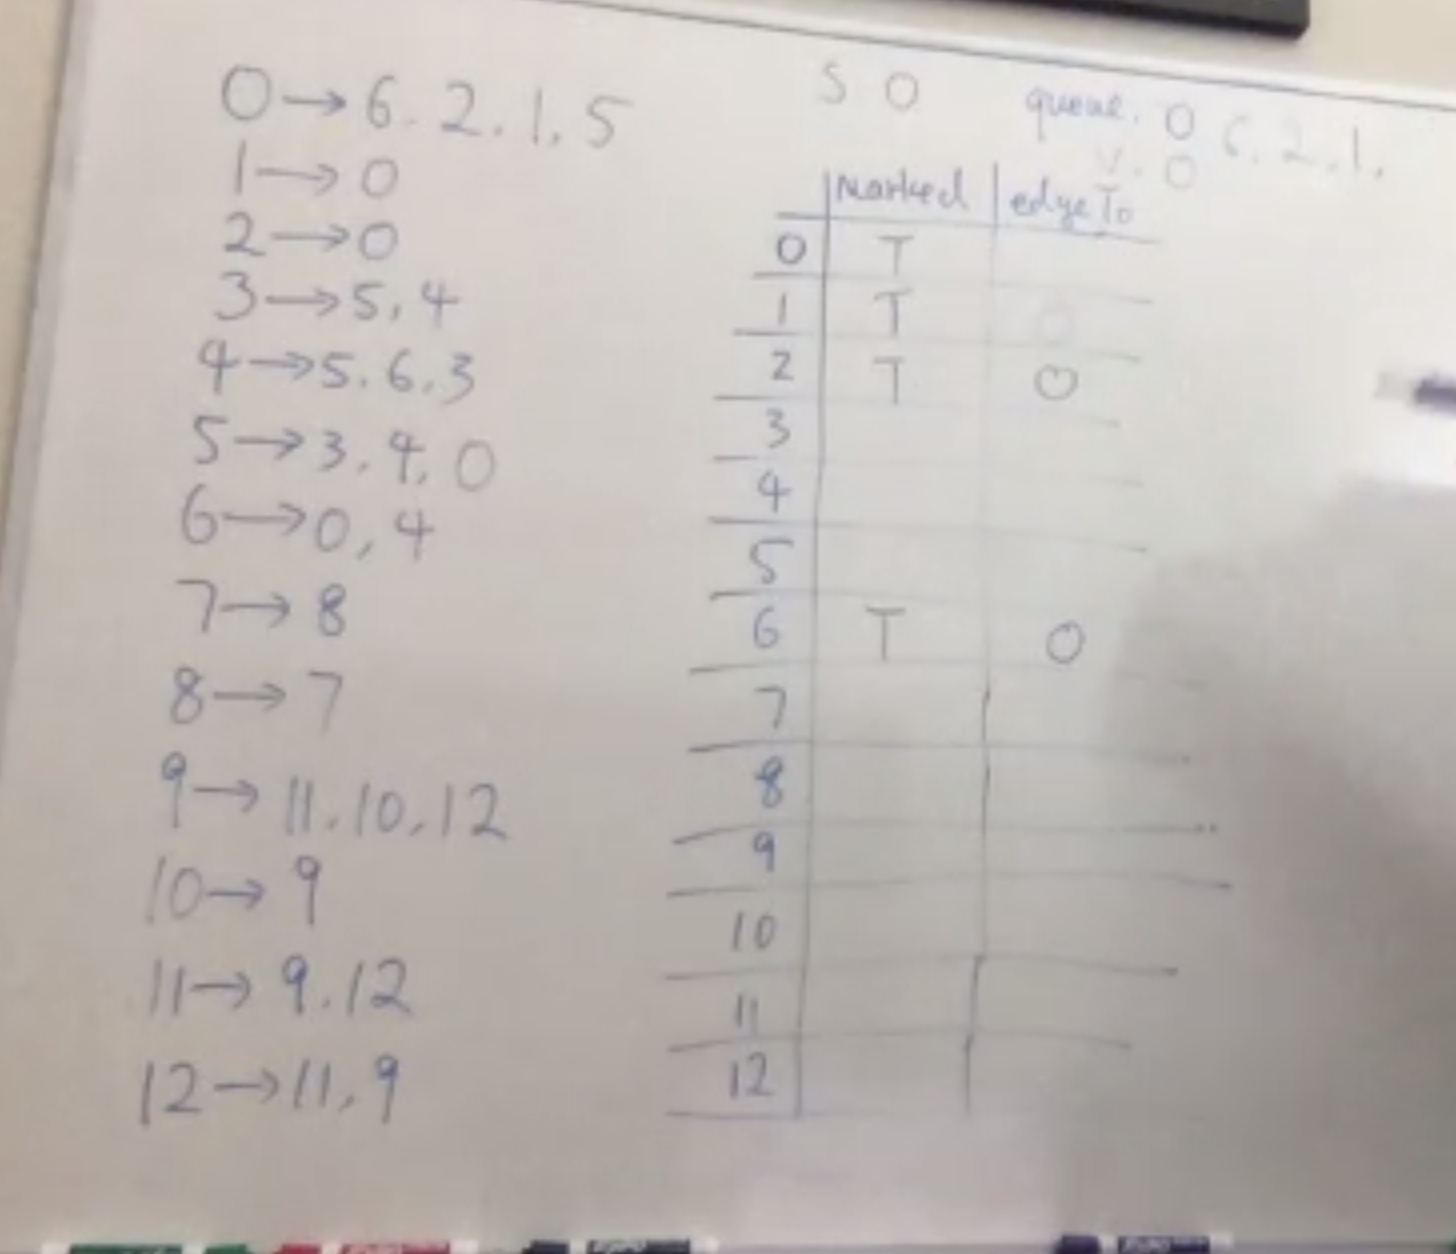 0→6.2.1.5
1→0
2→0
3→5,4
4→5.6.3
5→3.4.0
6→0,4
7→8
8→7
9→11.10.12
10→9
11→9.12
12→11,9
S 0
queue. 0 6.2.1.
v. 0
marked edgeTo
0 T
1 T 0
2 T 0
3
4
5
6 T 0
7
8
9
10
11
12